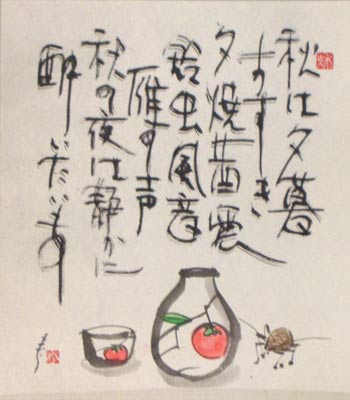 秋は夕暮
すすき
夕焼茜雲
鈴虫風音
雁の声
秋の夜は静かに
酔いたいもの